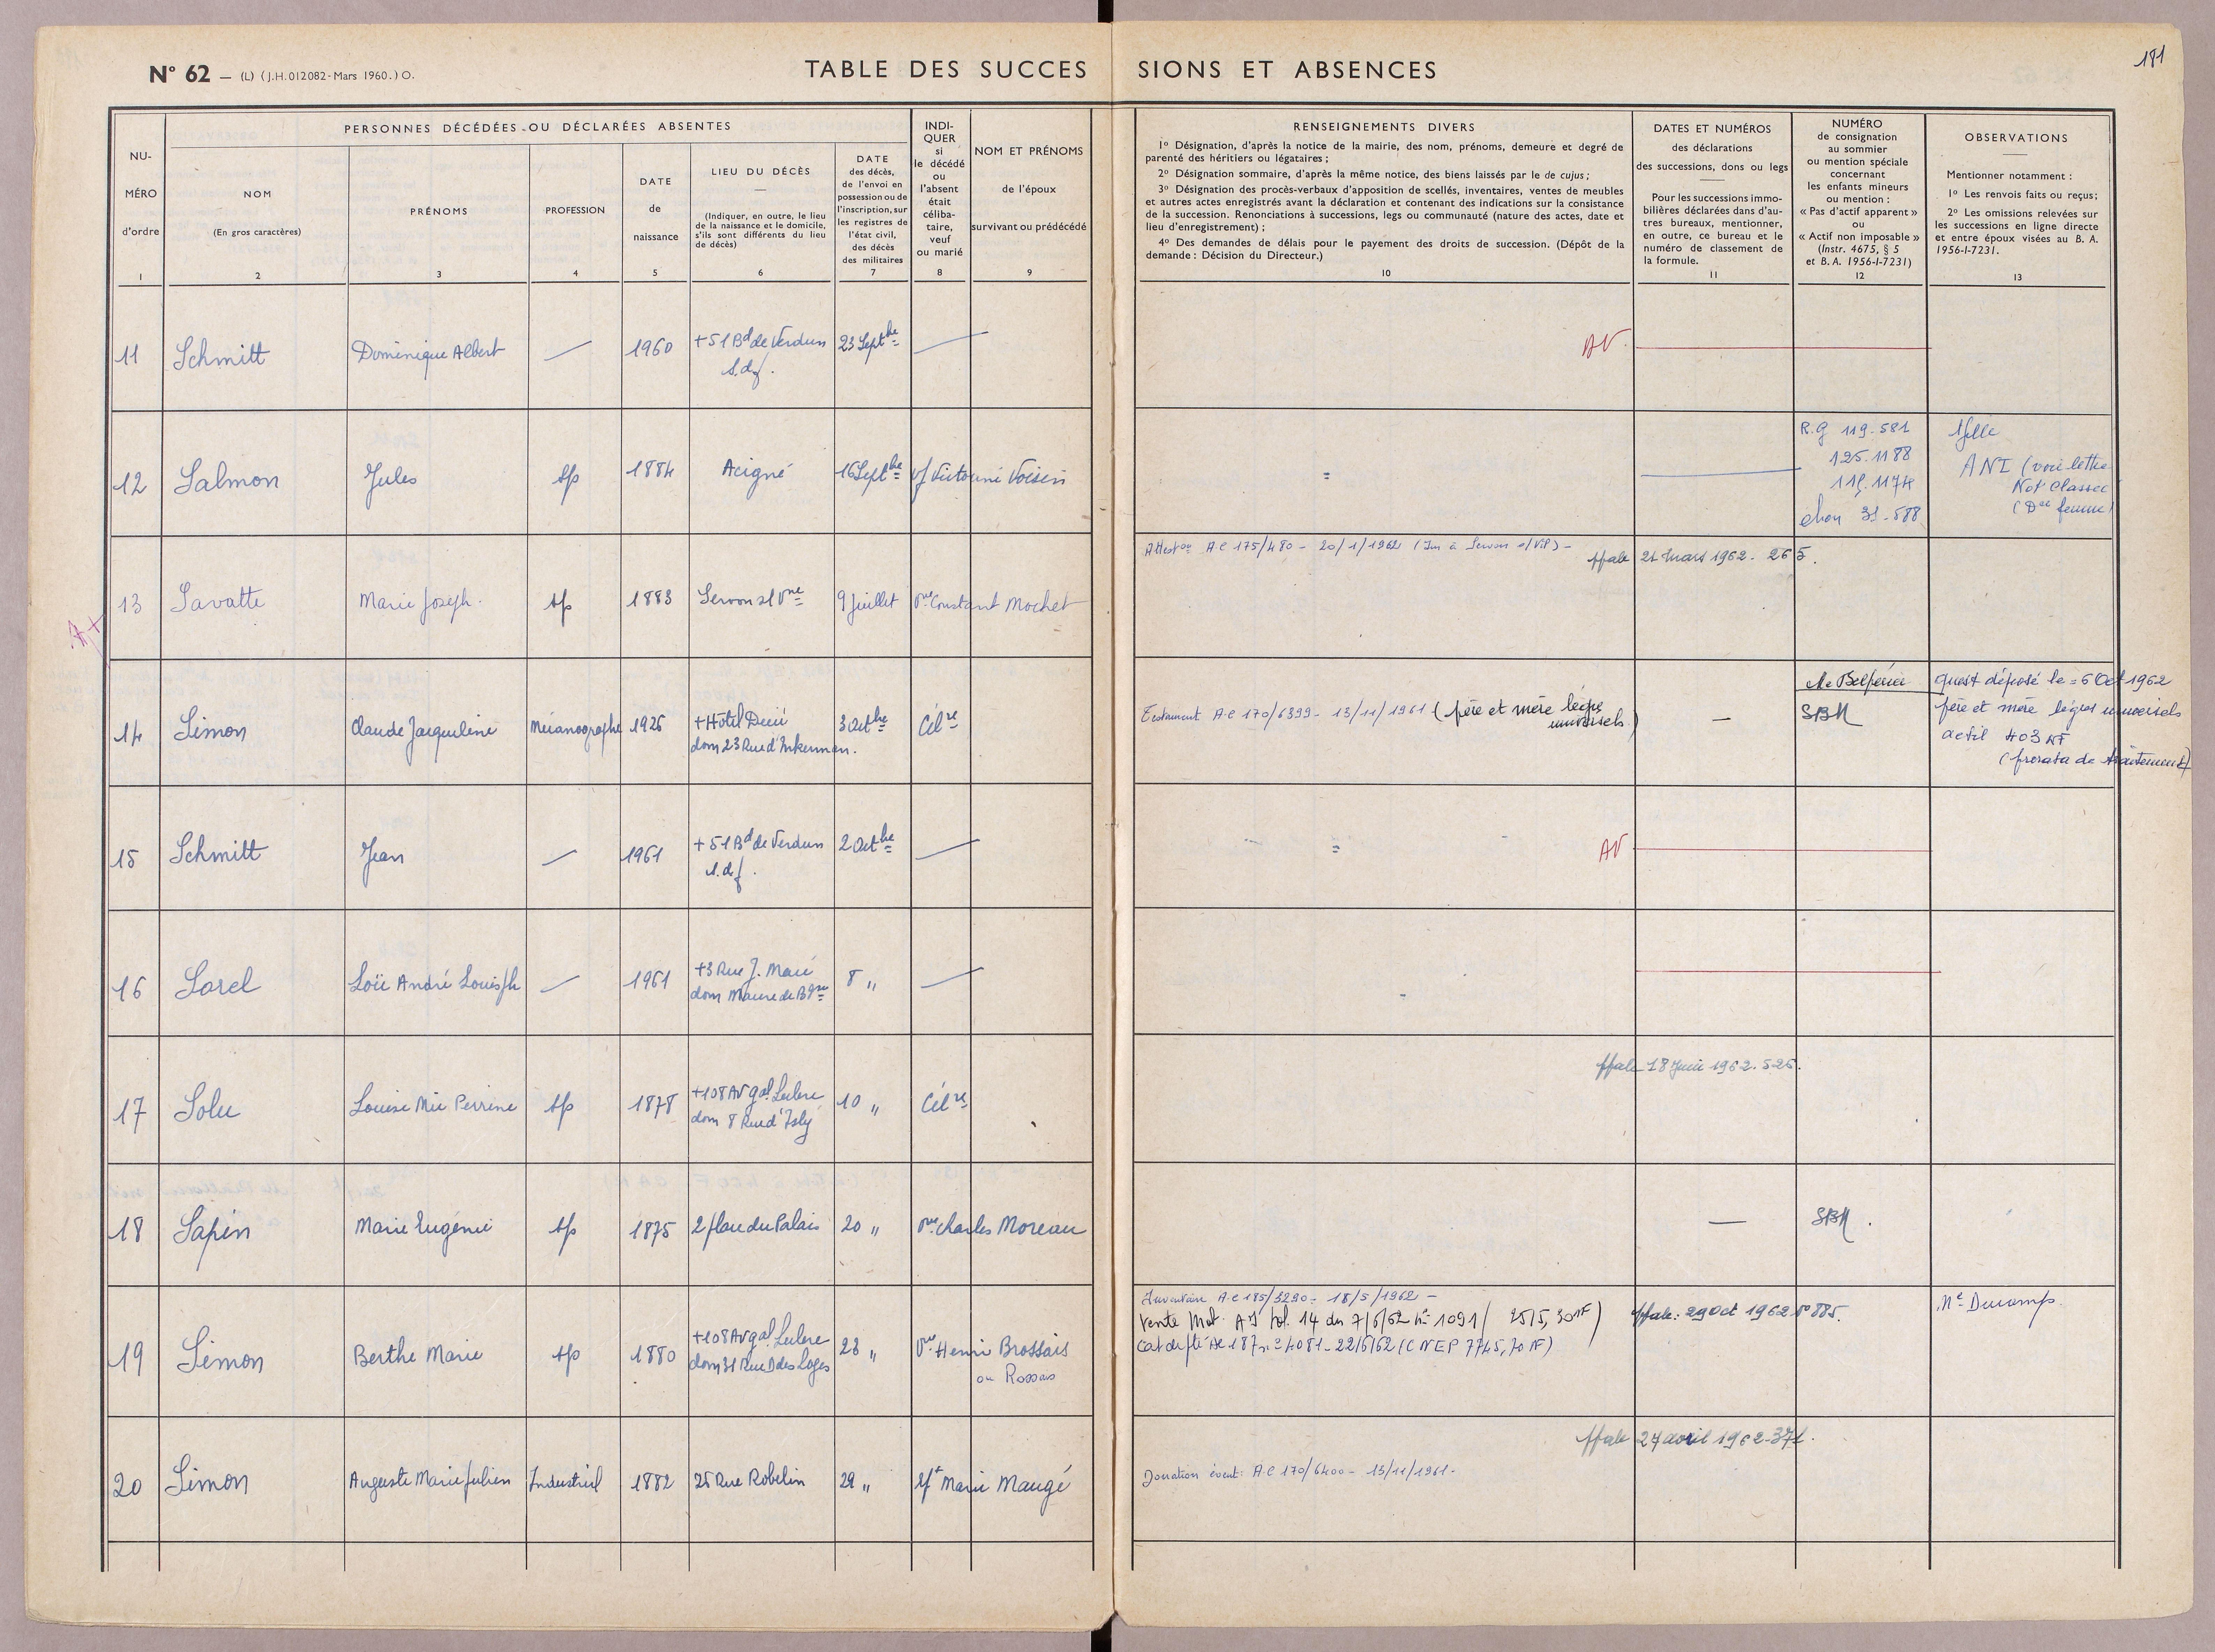 181
N° 62 — (L) (J.H. 012082 - Mars 1960.) O.
TABLE DES SUCCESSIONS ET ABSENCES
NU-
MÉRO
d'ordre
1
PERSONNES DÉCÉDÉES OU DÉCLARÉES ABSENTES
NOM
(En gros caractères)
2
PRÉNOMS
3
PROFESSION
4
DATE
de
naissance
5
LIEU DU DÉCÈS
(Indiquer, en outre, le lieu
de la naissance et le domicile,
s'ils sont différents du lieu
de décès)
6
DATE
des décès,
de l'envoi en
possession ou de
l'inscription, sur
les registres de
l'état civil,
des décès
des militaires
7
INDI-
QUER
si
le décédé
ou
l'absent
était
céliba-
taire,
veuf
ou marié
8
NOM ET PRÉNOMS
de l'époux
survivant ou prédécédé
9
RENSEIGNEMENTS DIVERS
1° Désignation, d'après la notice de la mairie, des nom, prénoms, demeure et degré de
parenté des héritiers ou légataires ;
2° Désignation sommaire, d'après la même notice, des biens laissés par le de cujus ;
3° Désignation des procès-verbaux d'apposition de scellés, inventaires, ventes de meubles
et autres actes enregistrés avant la déclaration et contenant des indications sur la consistance
de la succession. Renonciations à successions, legs ou communauté (nature des actes, date et
lieu d'enregistrement) ;
4° Des demandes de délais pour le payement des droits de succession. (Dépôt de la
demande : Décision du Directeur.)
10
DATES ET NUMÉROS
des déclarations
des successions, dons ou legs
Pour les successions immo-
bilières déclarées dans d'au-
tres bureaux, mentionner,
en outre, ce bureau et le
numéro de classement de
la formule.
11
NUMÉRO
de consignation
au sommier
ou mention spéciale
concernant
les enfants mineurs
ou mention :
« Pas d'actif apparent »
ou
« Actif non imposable »
(Instr. 4675, § 5
et B. A. 1956-I-7231)
12
OBSERVATIONS
Mentionner notamment :
1° Les renvois faits ou reçus ;
2° Les omissions relevées sur
les successions en ligne directe
et entre époux visées au B. A.
1956-I-7231.
13
11 Schmitt Dominique Albert — 1960 + 51 Bd de Verdun 23 Septbre —
s.d.f.
12 Salmon Jules sp 1884 Acigné 16 Septbre vf Victorine Voisin =
R.g 119.581
125.1188
115.1174
31-588
ANI (voir lettre
Not Classée
(Dce femme)
13 Savatte Marie Joseph sp 1883 Servon s/ Vne 9 Juillet Vve Constant Mochet
Atteston A.C 175/480 - 20/1/1962 (Im à Servon s/Vil) -
21 Mars 1962 - 265.
14 Simon Claude Jacqueline Mécanographe 1926 + Hôtel Dieu 3 Octbre Célre
dom 23 Rue d'Inkerman.
Testament A.C 170/6399 - 13/11/1961 (père et mère légres
universels) —
SBM
quest déposé le = 6 Oct 1962
père et mère légres universels
actif 403 NF
(prorata de traitement)
15 Schmitt Jean — 1961 + 51 Bd de Verdun 2 Octbre — =
s.d.f.
16 Sorel Loïc André Louis Jh — 1961 + 3 Rue J. Macé 8 " —
dom Maure de Bgne
17 Solu Louise Mie Perrine sp 1878 + 108 Av gal Leclerc 10 " Célre
dom 8 Rue d'Isly
18 Juin 1962. 526.
18 Sapin Marie Eugénie sp 1875 2 place du Palais 20 " Vve Charles Moreau — SBM.
19 Simon Berthe Marie sp 1880 + 108 Av gal Leclerc 23 " Vve Henri Brossais
dom 31 Rue D des Loges
ou Rossais
Inventaire A.C 185/3290 - 18/5/1962 -
Vente Mob. AJ vol. 14 du 7/6/62 n° 1091 / 2515,30 NF)
29 Oct 1962 n° 885.
Me Ducamp.
20 Simon Auguste Marie Julien Industriel 1882 25 Rue Robelin 29 " Marie Maugé
24 avril 1962-371.
Donation évent: A.C 170/6400 - 13/11/1961.